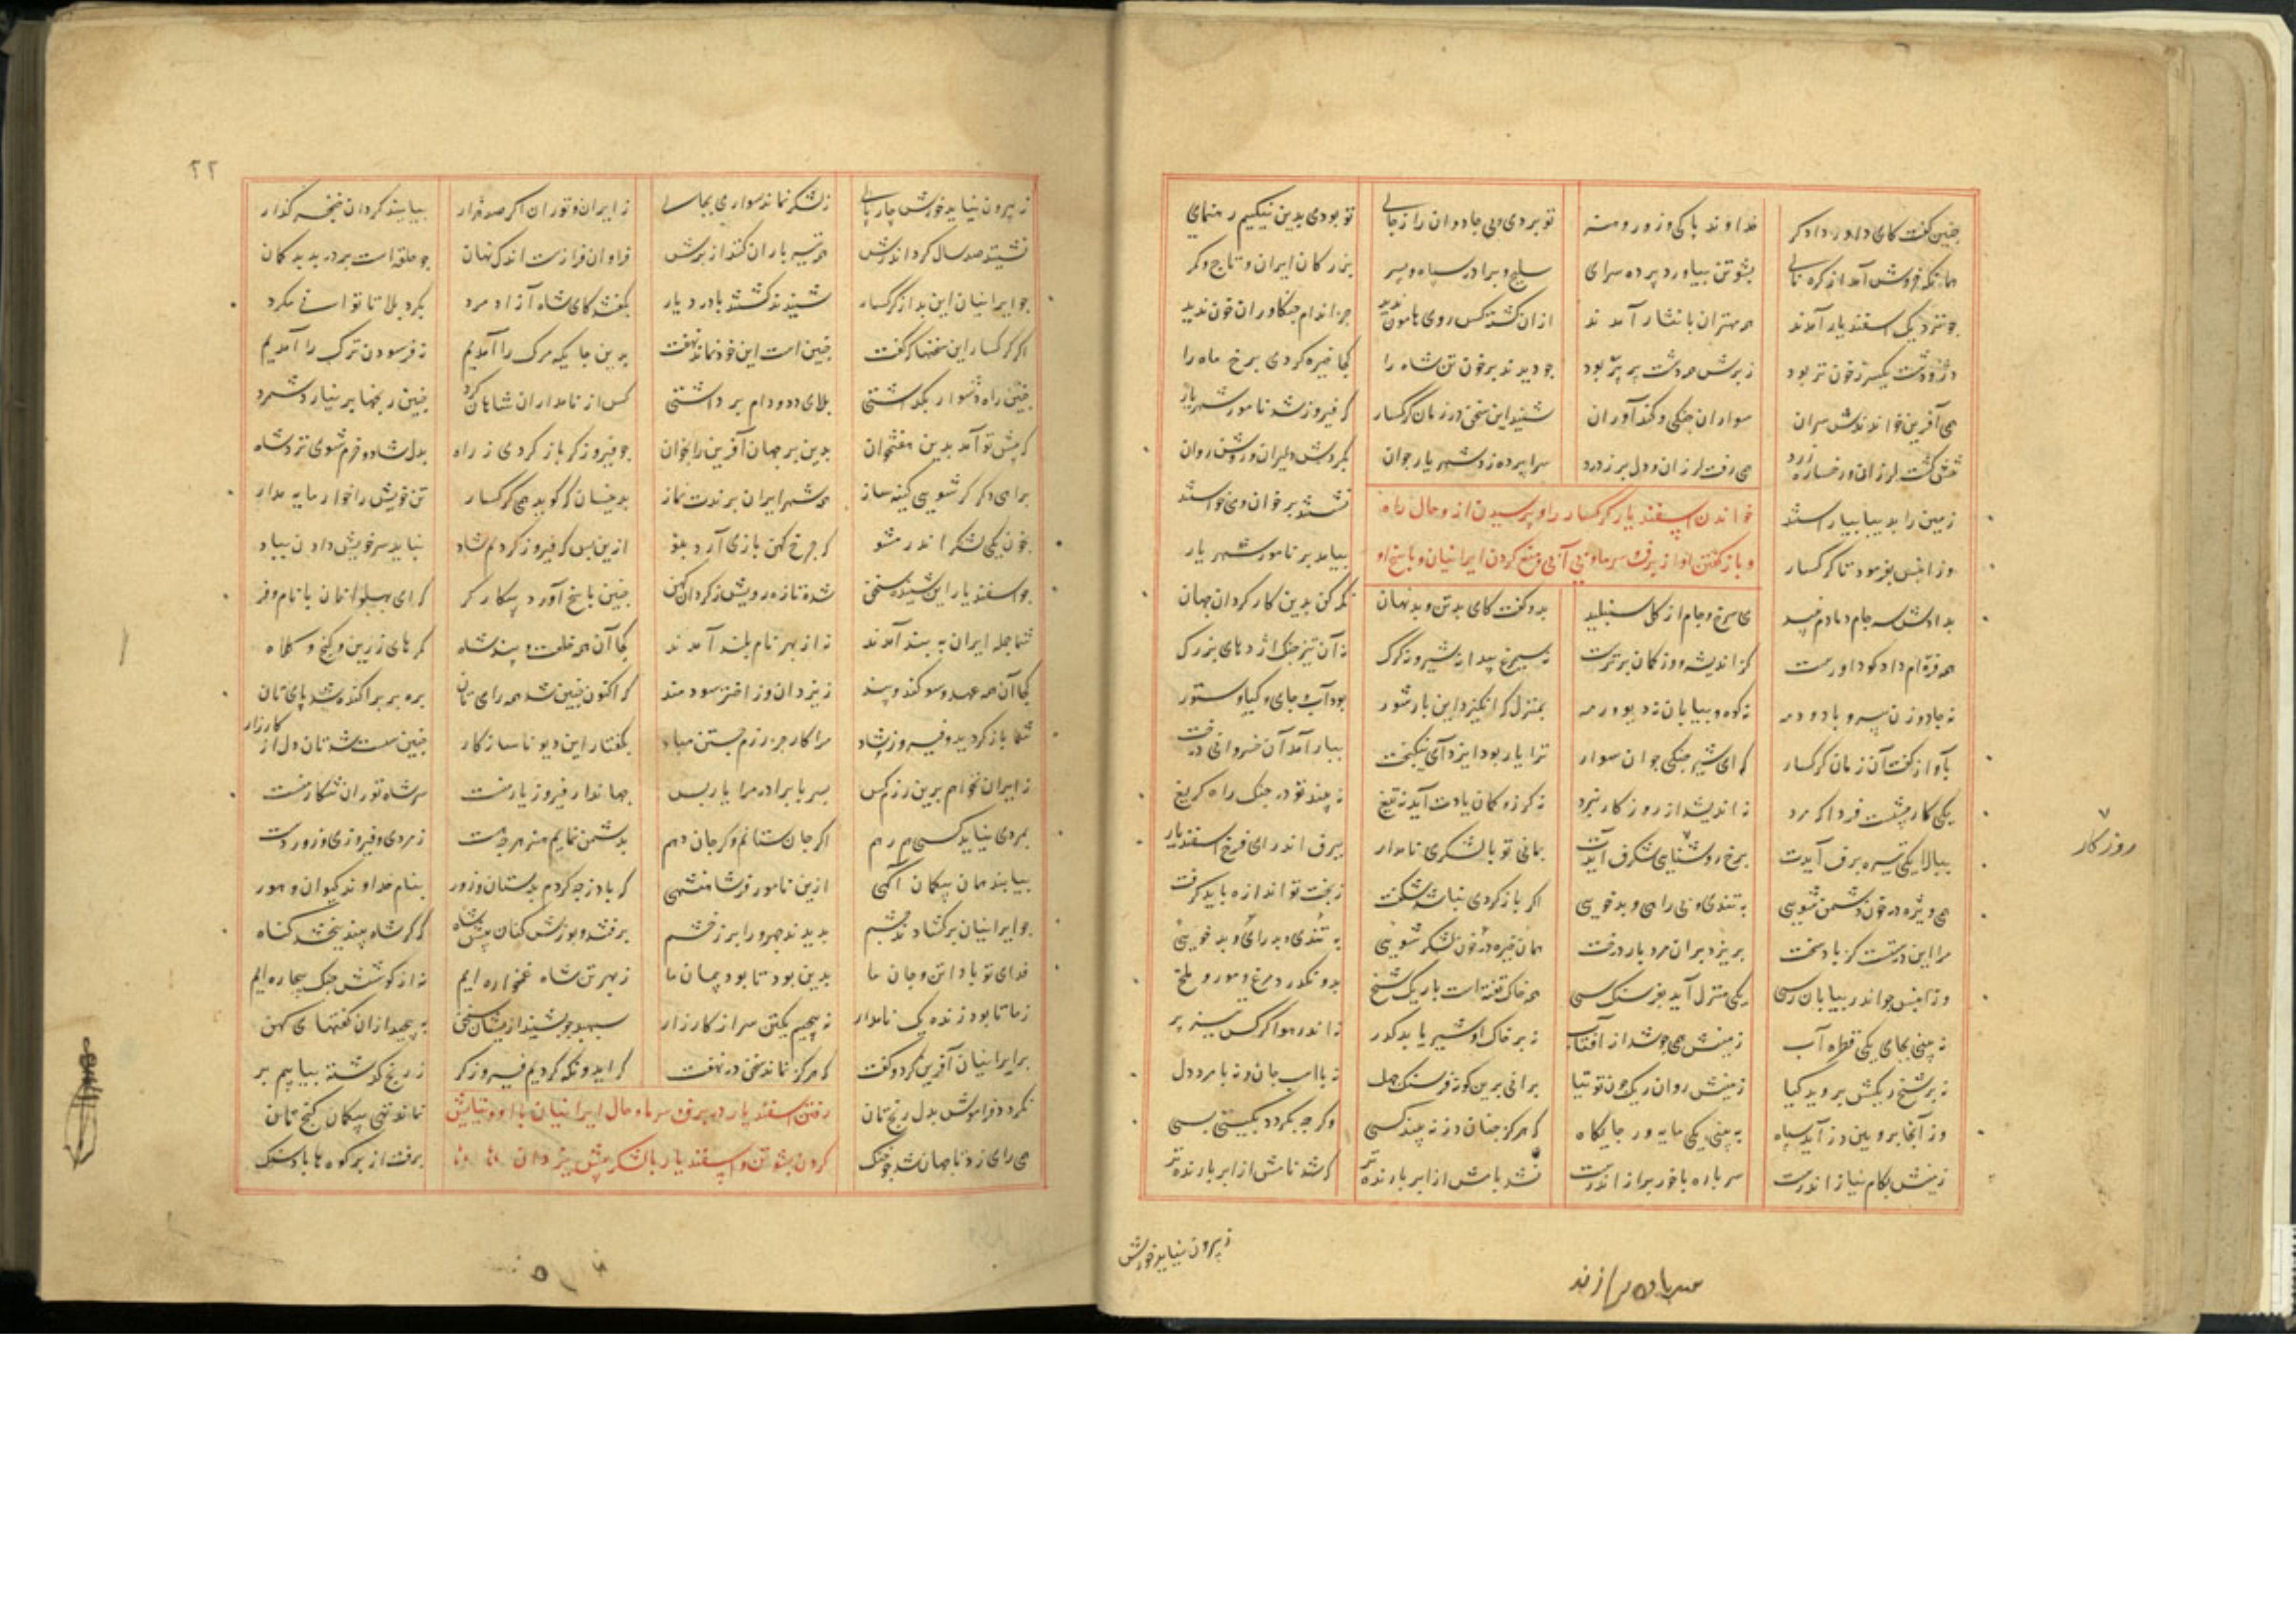 چنین گفت کای داور دادگر خداوند پاکی و زور و هنر تو بردی پی جادوان را ز جای تو بودی بدین نیکیم رهنمای
همانگه خروش آمد از کره نای بشوتن بیاورد پرده سرای سلیح و برادر سپاه و پسر بزرکان ایران و تاج و کمر
چو نزدیک اسفندیار آمدند همه مهتران با نثار آمدند از آن کشته کس روی هامون ندید جز اندام جنکاوران خون ندید
در و دشت یکسر ز خون تر بود ز پرش همه دشت پر پر بود چو دیدند پر خون تن شاه را کجا خیره کردی برخ ماه را
همی آفرین خواندندش سران سواران جنکی و کندآوران شنید این سخن در زمان کرکسار که فیروز شد نامور شهریار
تنش کشت لرزان و رخساره زرد همی رفت لرزان و دل پر ز درد سراپرده زد شهریار جوان بکردش دلیران روشن روان
زمین را بدیبا بیاراستند نشستند بر خوان و می خواستند
خواندن اسفندیار کرکسار را و پرسیدن از و حال راه
و باز کفتن او از برف و سرما و بی آبی و منع کردن ایرانیان و پاسخ او
وزان پس بفرمود تا کرکسار بیامد بر نامور شهریار
بدادش سه جام دمادم نبید می سرخ و جام از کل شنبلید بدو کفت کای بدتن و بدنهان نکه کن بدین کار کردان جهان
نه سیمرغ پیدا نه شیر و نه کرک نه آن تیز چنک اژدهای بزرک
بمنزل که انکیزد این بار شور بود آب و جای و کیا و ستور
بآواز کفت آن زمان کرکسار که ای شیر جنکی جوان سوار ترا یار بود ایزد ای نیکبخت ببار آمد آن خسروانی درخت
یکی کار پیشست فردا که مرد نه اندیشد از روزکار نبرد نه کرز و کمان یادت آید نه تیغ نه بیند تو در جنک راه کریغ
ببالا یکی نیزه برف آیدت برخ روشنایی شکرف آیدت بمانی تو با لشکری نامدار ببرف اندر ای فرخ اسفندیار
اکر باز کردی نباشد شکفت ز بخت تو اندازه باید کرفت
همی ویژه در خون دشمن شوی به تندی و بی راهی و بدخویی همان خیره در خون لشکر شوی به تندی و بد رای و بدخویی
مرا این درستست کز باد سخت بریزد بران مرد بار درخت
وزان پس چو اندر بیابان رسی یکی منزل آید بفرسنک سی همه خاک تفته است باریک شخ بدو نکذرد مرغ و مور و ملخ
نه بینی بجای یکی قطره آب زمینش همی جوشد از آفتاب نه بر خاک او شیر یابد کذر نه اندر هوا کرکس تیز پر
نه بر شخ ریکش بروید کیا زمینش روان ریک چون توتیا برانی برین کونه فرسنک چهل نه با اسب جان و نه با مرد دل
وز آنجا برویین دژ آید سپاه به بینی یکی مایه ور جایکاه که هرکز چنان دز نه بیند کسی وکر چه بکردد بکیتی بسی
زمینش بکام نیاز اندرست سر باره با خور براز اندرست
روزکار
ز بیرون نیاید خورش
۲۲
ز بیرون نیاید خورش چارپای ز لشکر نماند سواری بجای ز ایران و توران اکر صد هزار بیایند کردان خنجر کذار
نشینند صد سال کرد اندرش همه تیر باران کنند از برش فراوان فرازست اندک نهان چو حلقه است بر در بد بدکمان
چو ایرانیان این بد از کرکسار شنیدند کشتند با درد یار بکفتند کای شاه آزاد مرد بکرد بلا تا توانی مکرد
اکر کرکسار این سخنها که کفت چنین است این خود نماند نهفت بدین جایکه مرک را آمدیم نه فرسودن ترک را آمدیم
چنین راه دشوار بکذاشتی بلای دد و دام برداشتی کس از نامداران شاهان کرد چنین رنجها بر نیارد شمرد
که پیش تو آمد بدین هفتخوان بدین بر جهان آفرین را بخوان چو فیروز کر باز کردی ز راه بدل شاد و خرم شوی نزد شاه
براهی دکر کر شوی کینه ساز همه شهر ایران برندت نماز بدینسان که کوید همی کرکسار تن خویش را خوار مایه مدار
بخون یکی لشکر اندر مشو که چرخ کهن بازی آرد بنو ازین پس که فیروز کردیم شاد نباید سر خویش دادن بباد
چو اسفندیار این شنیده سخن شده تازه رویش ز کردان کهن چنین پاسخ آورد پیکارکر که ای پهلوانان با نام و فر
شما جمله ایران به پند آمدند نه از بهر نام بلند آمدند کجا آن همه خلعت و پند شاه کمرهای زرین و کنج و کلاه
کجا آن همه عهد و سوکند و بند ز یزدان و ز اختر سودمند که اکنون چنین شد همه رای تان بره بر پراکنده شد پای تان
شما باز کردید و فیروز شاد مرا کار جز رزم جستن مباد بکفتار این دیو ناساز کار چنین سست شدتان دل از کارزار
ز ایران نخواهم برین رزم کس پسر با برادر مرا یار بس جهاندار فیروز یار منست سر شاه توران شکار منست
بمردی نیاید کسی همرهم اکر جان ستانم وکر جان دهم بدشمن نمایم هنر هرچه هست ز مردی و فیروزی و زور دست
بیابند همان بیکمان آکهی ازین نامور فر شاهنشهی که با دز چه کردم بدستان و زور بنام خداوند کیوان و هور
چو ایرانیان برکشادند چشم بدیدند چهرو را پر ز خشم برفتند و پوزش کنان پیش شاه که کر شاه بیند ببخشد کناه
فدای تو باد تن و جان ما بدین بود تا بود پیمان ما ز بهر تن شاه غمخواره ایم نه از کوشش جنک بیچاره ایم
ز ما تا بود زنده یک نامدار نه پیچیم یکتن سر از کارزار سپهبد چو بشنید ازیشان سخن به پیچید از آن کفتهای کهن
بر ایرانیان آفرین کرد و کفت که هرکز نماند سخن در نهفت کر ایدونکه کردیم فیروزکر ز رنج کذشته بیابیم بر
نکردد فراموش بدل رنج تان نماند تهی بیکمان کنج تان
رفتن اسفندیار در برف و سرما و حال ایرانیان با او و نیایش
کردن بشوتن و اسفندیار با لشکر پیش یزدان
همی رای زد تا جهان شد چو جنک برفت از بر کوه ها باد سنک